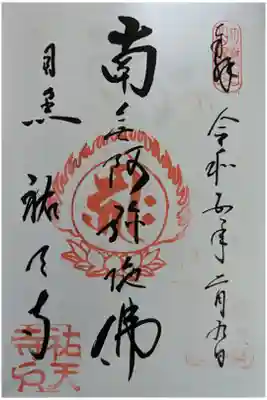 奉拝
令和五年二月九日
南無阿弥陀佛
目黒 祐天寺
祐天
寺印